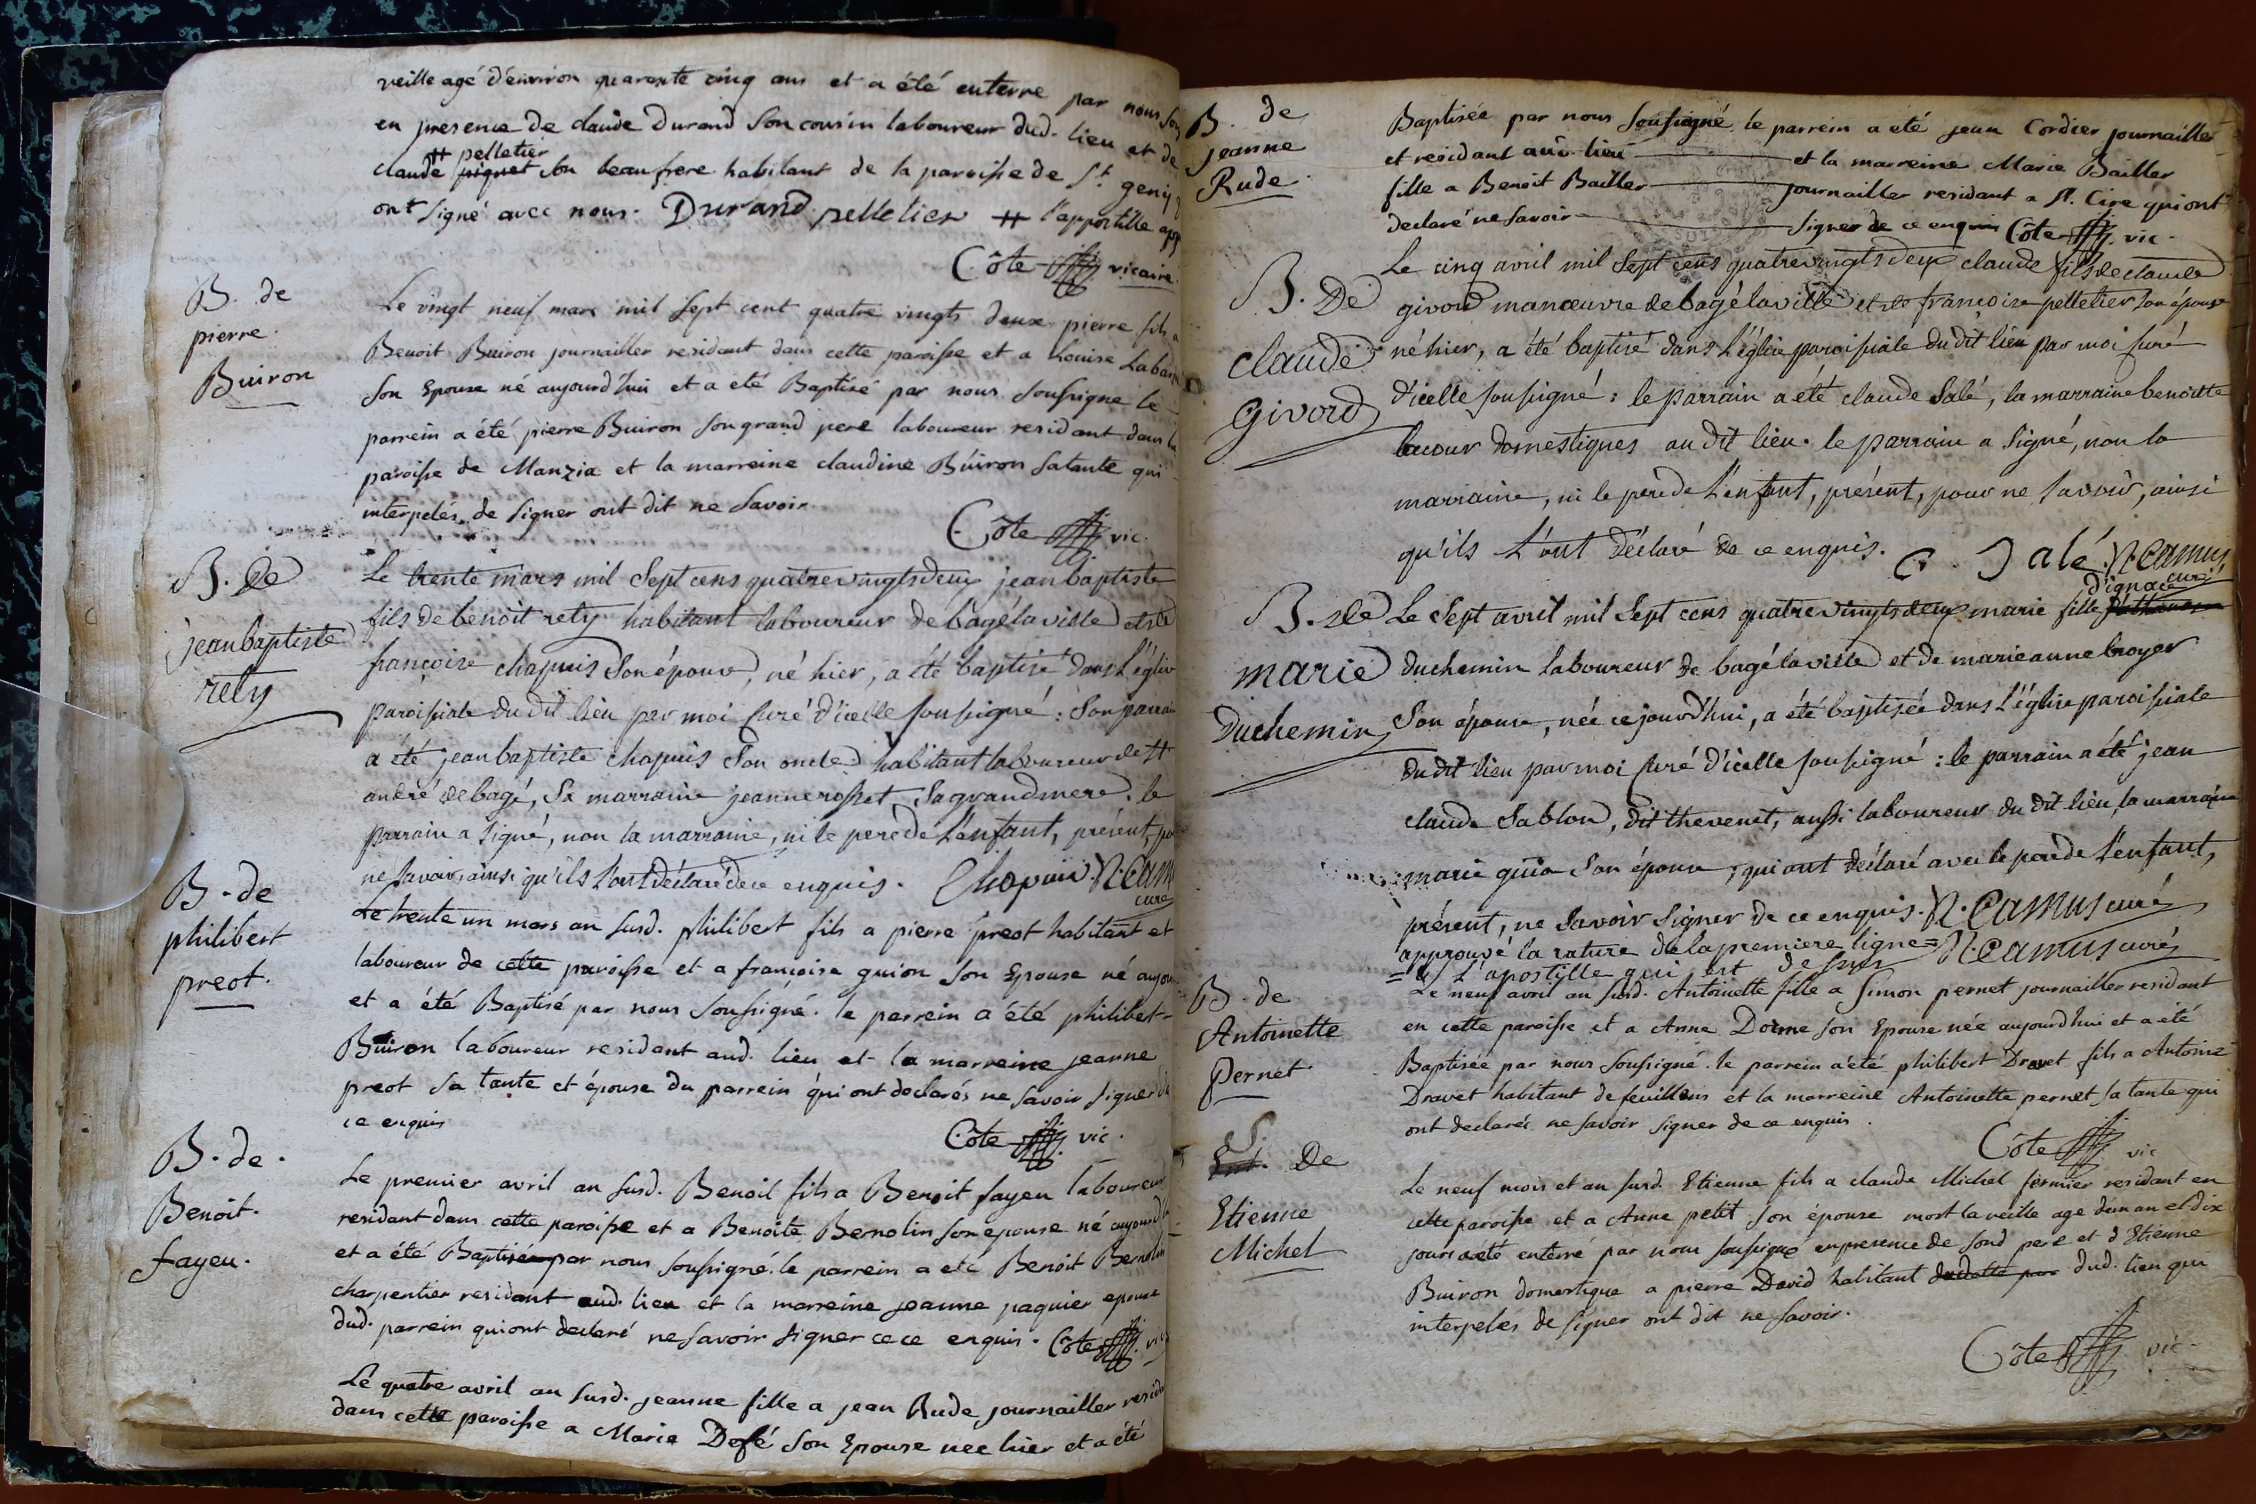 veille agé d'environ quarente cinq ans et a été enterre par nous sou
en presence de claude Durand son cousin laboureur dud. lieu et de
# pelletier
claude piquet son beaufrere habitant de la paroisse de St. genis
ont signé avec nous. Durand pelletier # l'appostille app
Côte vicaire.
B. de
pierre.
Buiron
Le vingt neuf mars mil sept cent quatre vingts deux pierre fils a
Benoit Buiron journailler residant dans cette paroisse et a Louise Laba
son Epouse né aujourd'hui et a eté Baptisé par nous soussigne le
parrein a été pierre Buiron son grand pere laboureur residant dans la
paroisse de Manzia et la marreine claudine Buiron sa tante qui
interpelés de signer ont dit ne savoir.
Côte vic.
B. De
jeanbaptiste
rety
Le trente mars mil sept cens quatre vingts deux jean baptiste
fils de benoit rety habitant laboureur de bagé la ville et de
francoise chapuis son épouse, né hier, a été baptisé dans l'église
paroissiale du dit lieu par moi curé d'icelle soussigné: son parrain
a été jean baptiste chapuis son oncle habitant laboureur de St
andré de bagé, sa marraine jeanne rosset sa grandmere. le
parrain a signé, non la marraine, ni le pere de l'enfant, présent, po
ne savoir, ainsi qu'ils l'ont déclaré de ce enquis. Chapuis. N. Cam
curé
B. de
philibert
preot.
Le trente un mars an susd. philibert fils a pierre preot habitant et
laboureur de cette paroisse et a francoise guion son Epouse né aujou
et a été Baptisé par nous soussigné. le parrein a été philibert
Buiron laboureur residant aud. lieu et la marreine jeanne
preot sa tante et épouse du parrein qui ont declarés ne savoir signer de
ce enquis
Côte vic.
B. de.
Benoit.
fayeu.
Le premier avril an susd. Benoit fils a Benoit fayeu laboureur
residant dans cette paroisse et a Benoite Bernolin son epouse né aujourd'h
et a été Baptisé par nous soussigné. le parrein a eté Benoit Bernolin
charpentier residant aud. lieu et la marreine jeanne paquier epouse
dud. parrein qui ont declaré ne savoir signer ce ce enquis. Côte vic
Le quatre avril an susd. jeanne fille a jean Rude journailler resida
dans cette paroisse a Marie Defé son Epouse nee hier et a été
B. de
jeanne
Rude.
Baptisée par nous soussigné le parrein a eté jean Cordier journailler
et residant aud. lieu et la marreine Marie Bailler
fille a Benoit Bailler journailler residant a St. Cire qui ont
declaré ne savoir signer de ce enquis Côte vic.
B. De
claude
givord
Le cinq avril mil sept cens quatre vingts deux claude fils de claude
givord manœuvre de bagé la ville et de francoise pelletier son épouse
né hier, a été baptisé dans l'église paroissiale du dit lieu par moi curé
d'icelle soussigné: le parrain a été claude Salé, la marraine benoitte
lacour domestiques au dit lieu. le parrain a signé, non la
marraine, ni le pere de l'enfant, présent, pour ne savoir, ainsi
qu'ils l'ont déclaré de ce enquis. C. Salé. N. Camus
curé
B. De
marie
Duchemin
d'ignace
Le sept avril mil sept cens quatre vingts deux marie fille
duchemin laboureur de bagé la ville et de marie anne broyer
son épouse, née ce jourd'hui, a été baptisée dans l'église paroissiale
du dit lieu par moi curé d'icelle soussigné: le parrain a été jean
claude Sablon, dit thevenet, aussi laboureur du dit lieu, la marraine
marie guio son épouse, qui ont déclaré avec le pere de l'enfant,
présent, ne savoir signer de ce enquis. N. Camus curé
approuvé la rature de la premiere ligne = N. Camus curé
= et l'apostille qui est dessus
B. de
Antoinette
Pernet.
Le neuf avril an susd. Antoinette fille a Simon pernet journailler residant
en cette paroisse et a Anne Dorme son Epouse née aujourd'hui et a été
Baptisée par nous soussigné. le parrein a été philibert Dravet fils a Antoine
Dravet habitant de feuillens et la marreine Antoinette pernet sa tante qui
ont declarés ne savoir signer de ce enquis.
Côte vic
S.
Ent. De
Etienne
Michel
Le neuf mois et an susd. Etienne fils a claude Michel fermier residant en
cette paroisse et a Anne petit son épouse mort la veille age d'un an et dix
jours a eté enterré par nous soussigné en presence de sond pere et d'Etienne
Buiron domestique a pierre David habitant dud. lieu qui
interpelés de signer ont dit ne savoir.
Côte vic.